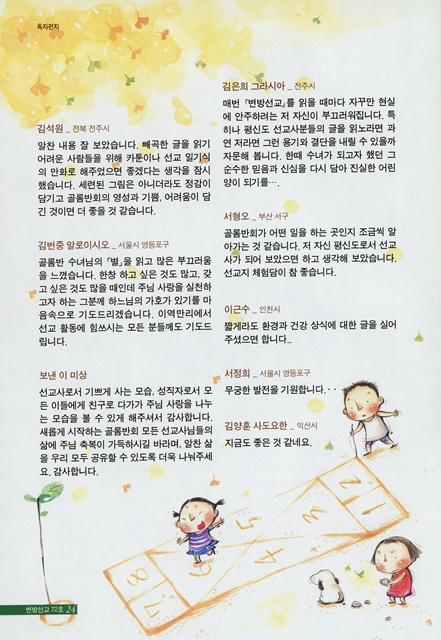 독자편지
김석원 _ 전북 전주시
알찬 내용 잘 보았습니다. 빼곡한 글을 읽기
어려운 사람들을 위해 카툰이나 선교 일기식
의 만화로 해주었으면 좋겠다는 생각을 잠시
했습니다. 세련된 그림은 아니더라도 정감이
담기고 골롬반회의 영성과 기쁨, 어려움이 담
긴 것이면 더 좋을 것 같습니다.
김번중 알로이시오 _ 서울시 영등포구
골롬반 수녀님의 『별』을 읽고 많은 부끄러움
을 느꼈습니다. 한창 하고 싶은 것도 많고, 갖
고 싶은 것도 많을 때인데 주님 사랑을 실천하
고자 하는 그분께 하느님의 가호가 있기를 마
음속으로 기도드리겠습니다. 이역만리에서
선교 활동에 힘쓰시는 모든 분들께도 기도드
립니다.
보낸 이 미상
선교사로서 기쁘게 사는 모습, 성직자로서 모
든 이들에게 친구로 다가가 주님 사랑을 나누
는 모습을 볼 수 있게 해주셔서 감사합니다.
새롭게 시작하는 골롬반회 모든 선교사님들의
삶에 주님 축복이 가득하시길 바라며, 알찬 삶
을 우리 모두 공유할 수 있도록 더욱 나눠주세
요. 감사합니다.
김은희 그라시아 _ 전주시
매번 『변방선교』를 읽을 때마다 자꾸만 현실
에 안주하려는 저 자신이 부끄러워집니다. 특
히나 평신도 선교사분들의 글을 읽노라면 과
연 저라면 그런 용기와 결단을 내릴 수 있을까
자문해 봅니다. 한때 수녀가 되고자 했던 그
순수한 믿음과 신심을 다시 담아 진실한 어린
양이 되기를….
서형오 _ 부산 서구
골롬반회가 어떤 일을 하는 곳인지 조금씩 알
아가는 것 같습니다. 저 자신 평신도로서 선교
사가 되어 보았으면 하고 생각해 보았습니다.
선교지 체험담이 참 좋습니다.
이근수 _ 인천시
짧게라도 환경과 건강 상식에 대한 글을 실어
주셨으면 합니다..
서정희 _ 서울시 영등포구
무궁한 발전을 기원합니다. · ·
김양훈 사도요한 _ 익산시
지금도 좋은 것 같네요.
1
2
3
4
5
6
7
8
변방선교 72호 24